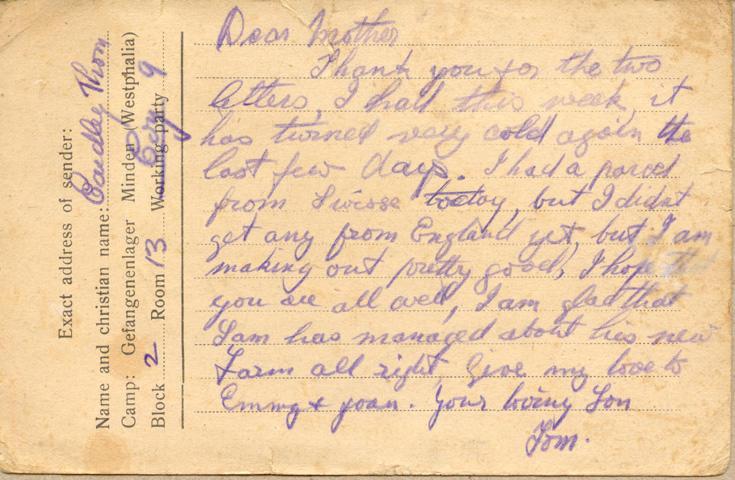 Exact address of sender:
Name and christian name: Pardley Thom
Camp: Gefangenenlager Minden (Westphalia)
Block 2 Room 13 Working party 9
Dear Mother
Thank you for the two
letters, I had this week, it
has turned very cold again the
last few days. I had a parcel
from Swisse today, but I didnt
get any from England yet, but I am
making out pretty good, I hope that
you are all well, I am glad that
Sam has managed about his new
Farm all right Give my love to
Emmy + Joan. Your loving Son
Tom.